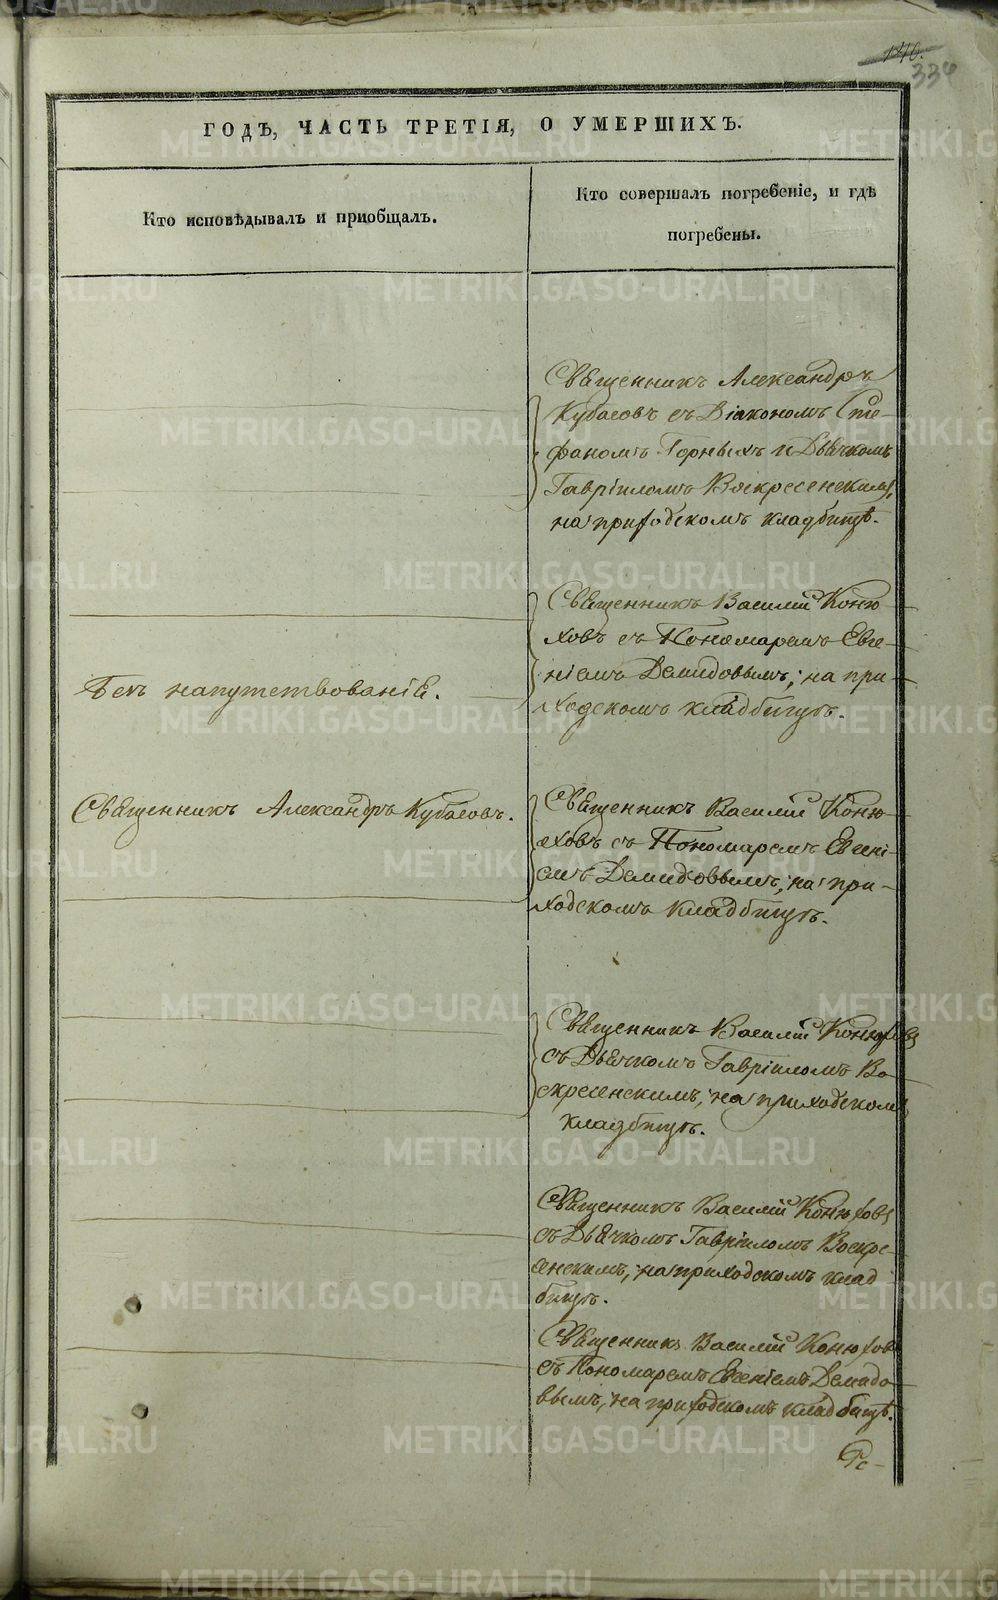 140.
334
ГОДЪ, ЧАСТЬ ТРЕТІЯ, О УМЕРШИХЪ.
Кто исповѣдывалъ и приобщалъ.
Кто совершалъ погребеніе, и гдѣ
погребены.
Священникъ Александръ
Кубасовъ съ Діакономъ Сте-
фаномъ Горныхъ и Дьячкомъ
Гавріиломъ Воскресенскимъ,
на приходскомъ кладбищѣ.
Священникъ Василій Коню-
ховъ съ Пономаремъ Евге-
ніемъ Демидовымъ, на при-
ходскомъ кладбищѣ.
Безъ напутствованія.
Священникъ Александръ Кубасовъ.
Священникъ Василій Коню-
ховъ съ Пономаремъ Евгені-
емъ Демидовымъ, на при-
ходскомъ кладбищѣ.
Священникъ Василій Конюховъ
съ Дьячкомъ Гавріиломъ Во-
скресенскимъ, на приходскомъ
кладбищѣ.
Священникъ Василій Конюховъ
съ Дьячкомъ Гавріиломъ Воскре-
сенскимъ, на приходскомъ клад
бищѣ.
Священникъ Василій Конюховъ
съ Пономаремъ Евгеніемъ Демидо-
вымъ, на приходскомъ кладбищѣ.
METRIKI.GASO-URAL.RU